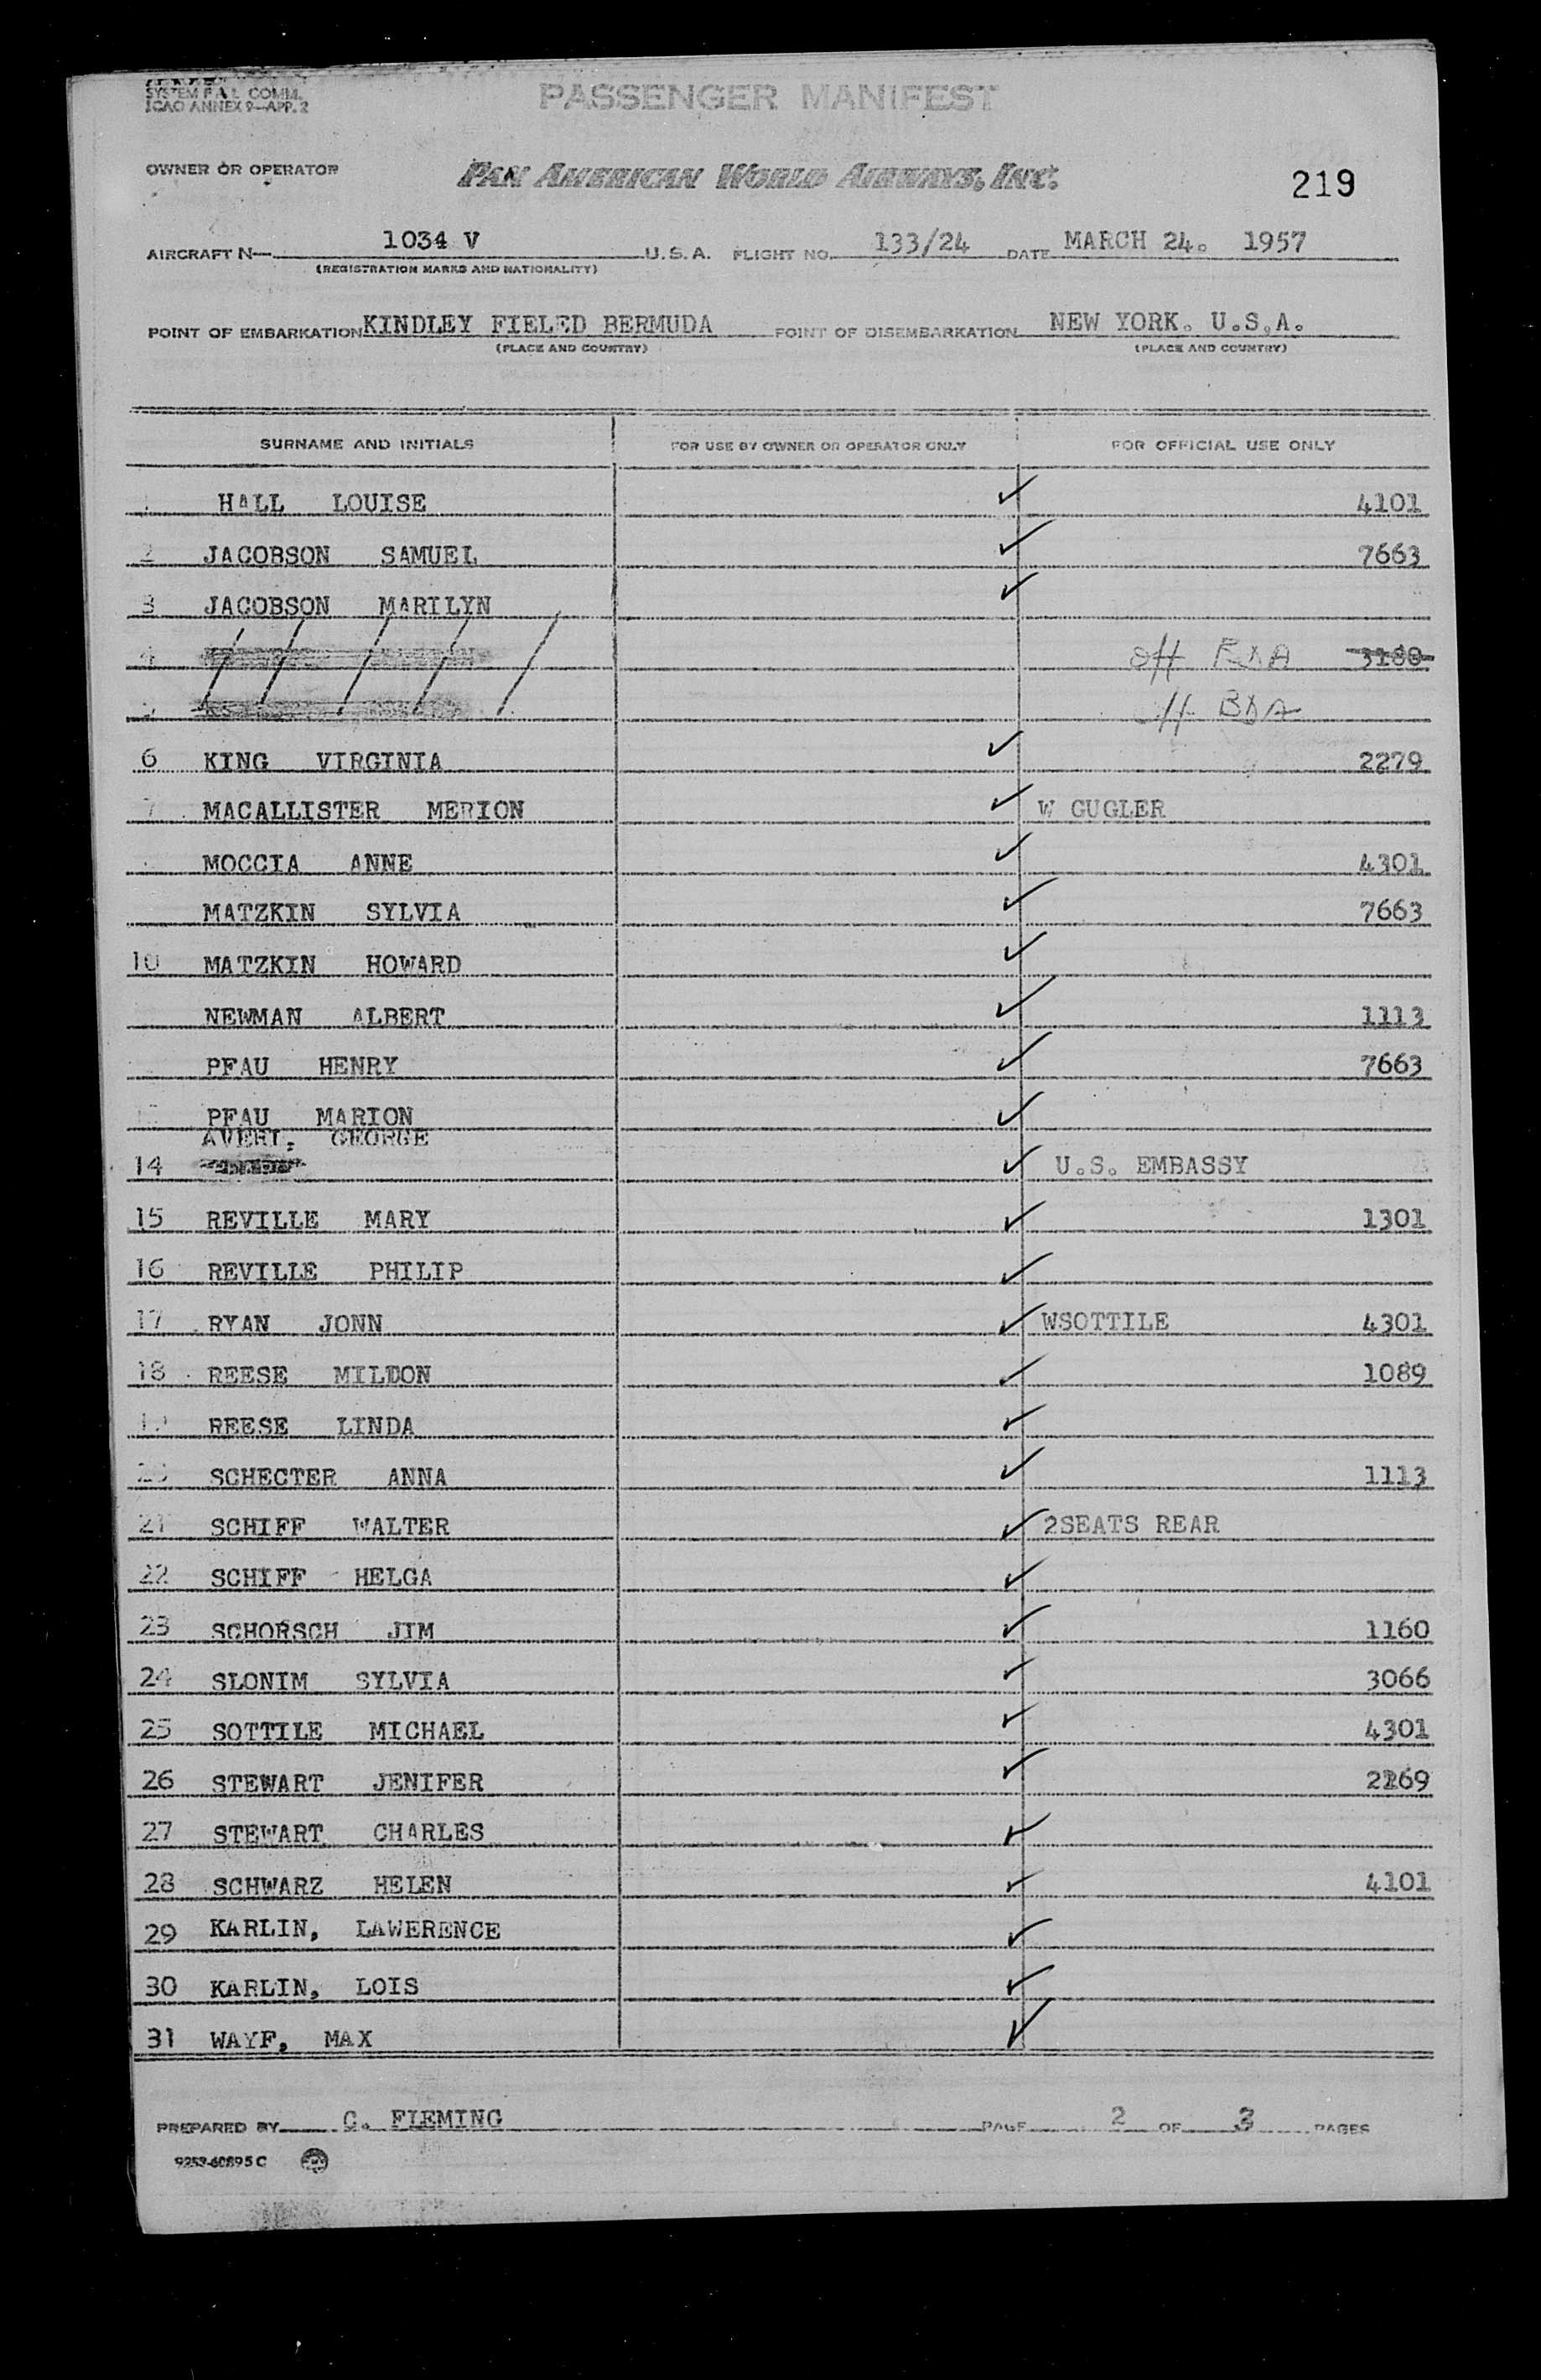 SYSTEM F.A.L. COMM.
ICAO ANNEX 9—APP. 2
PASSENGER MANIFEST
OWNER OR OPERATOR
PAN AMERICAN WORLD AIRWAYS, INC.
219
AIRCRAFT N— 1034 V U.S.A. FLIGHT NO. 133/24 DATE MARCH 24. 1957
(REGISTRATION MARKS AND NATIONALITY)
POINT OF EMBARKATION KINDLEY FIELED BERMUDA POINT OF DISEMBARKATION NEW YORK. U.S.A.
(PLACE AND COUNTRY) (PLACE AND COUNTRY)
SURNAME AND INITIALS FOR USE BY OWNER OR OPERATOR ONLY FOR OFFICIAL USE ONLY
HALL LOUISE ✓ 4101
2 JACOBSON SAMUEL ✓ 7663
3 JACOBSON MARILYN ✓
4 off BDA 3188
off BDA
6 KING VIRGINIA ✓ 2279
7 MACALLISTER MERION ✓ W GUGLER
MOCCIA ANNE ✓ 4301
MATZKIN SYLVIA ✓ 7663
10 MATZKIN HOWARD ✓
NEWMAN ALBERT ✓ 1113
PFAU HENRY ✓ 7663
PFAU MARION ✓
AVERI, GEORGE
14 ✓ U.S. EMBASSY
15 REVILLE MARY ✓ 1301
16 REVILLE PHILIP ✓
17 RYAN JONN ✓ WSOTTILE 4301
18 REESE MILDON ✓ 1089
19 REESE LINDA ✓
20 SCHECTER ANNA ✓ 1113
21 SCHIFF WALTER ✓ 2SEATS REAR
22 SCHIFF HELGA ✓
23 SCHORSCH JIM ✓ 1160
24 SLONIM SYLVIA ✓ 3066
25 SOTTILE MICHAEL ✓ 4301
26 STEWART JENIFER ✓ 2269
27 STEWART CHARLES ✓
28 SCHWARZ HELEN ✓ 4101
29 KARLIN, LAWERENCE ✓
30 KARLIN, LOIS ✓
31 WAYF, MAX ✓
PREPARED BY C. FLEMING PAGE 2 OF 3 PAGES
9253-60895C